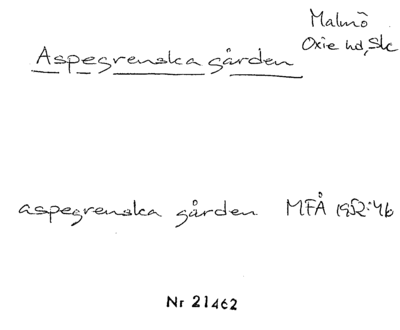 Malmö
Oxie hd, Skc
Aspegrenska gården
aspegrenska gården MFÅ 1952:46
Nr 21462